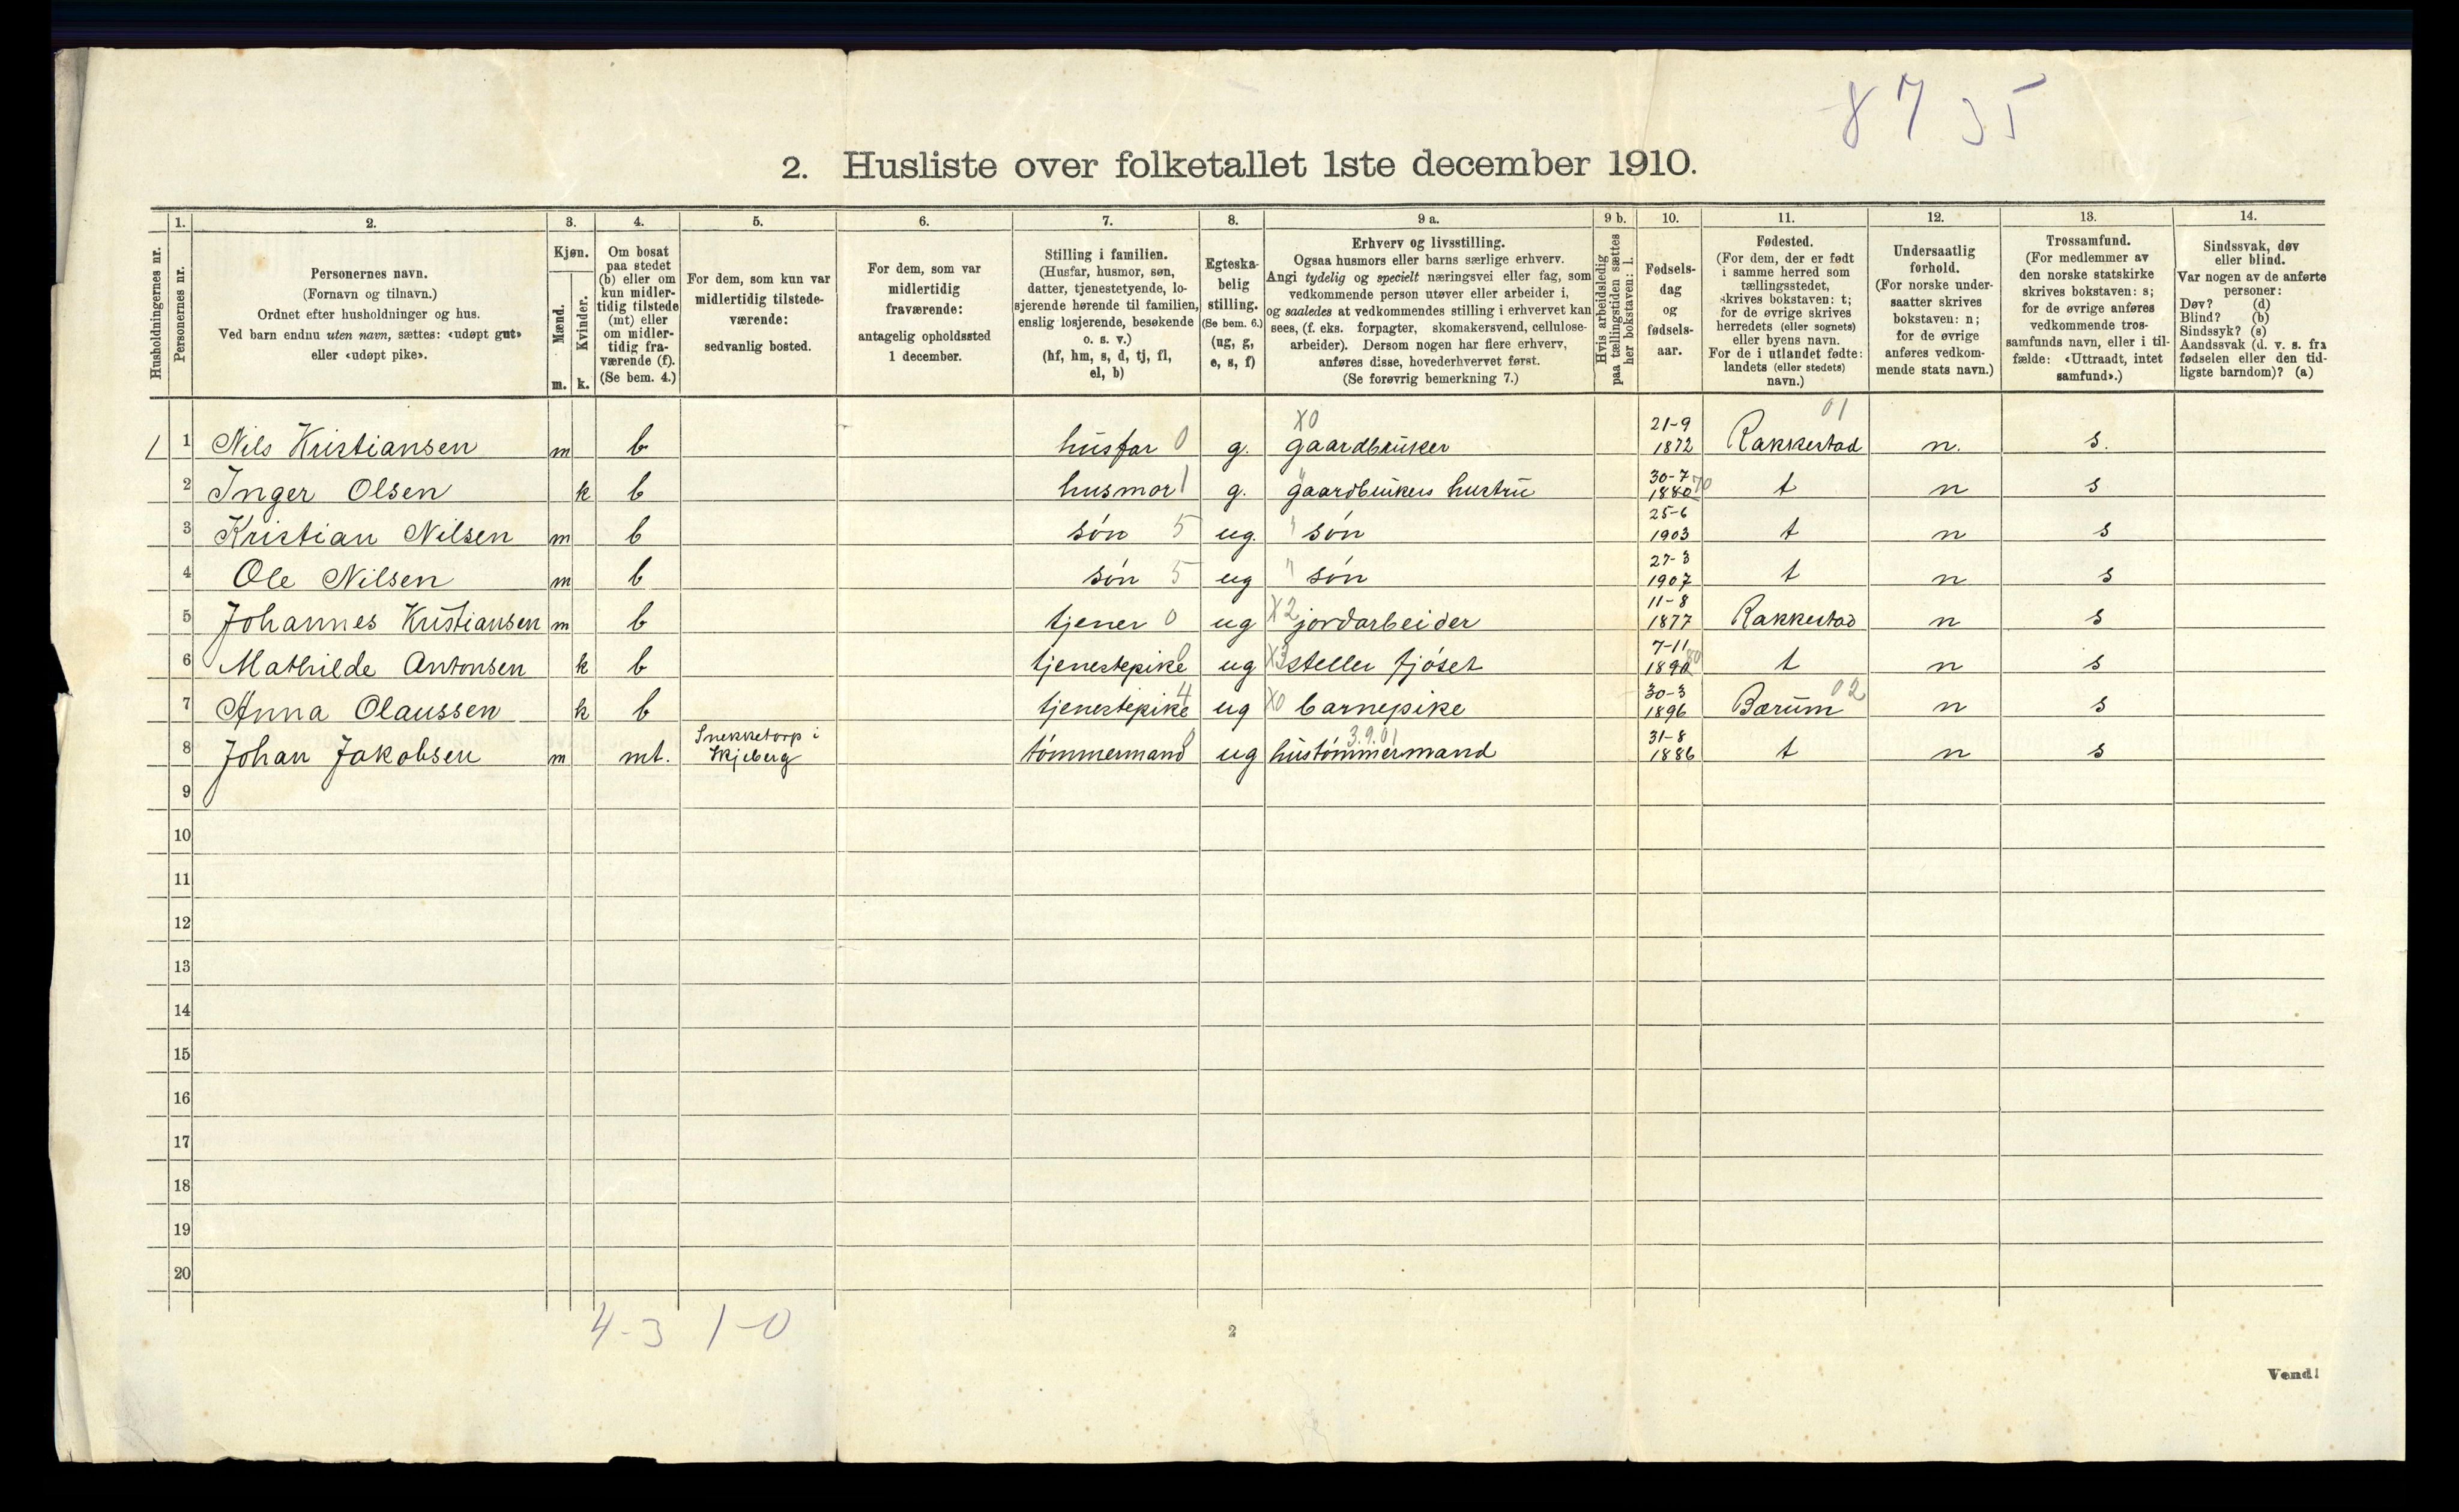 8735
2. Husliste over folketallet 1ste december 1910.
Husholdningernes nr.
1.
Personernes nr.
2.
Personernes navn.
(Fornavn og tilnavn.)
Ordnet efter husholdninger og hus.
Ved barn endnu uten navn, sættes: «udøpt gut»
eller «udøpt pike».
3.
Kjøn.
Mænd.
Kvinder.
m. k.
4.
Om bosat
paa stedet
(b) eller om
kun midler-
tidig tilstede
(mt) eller
om midler-
tidig fra-
værende (f).
(Se bem. 4.)
5.
For dem, som kun var
midlertidig tilstede-
værende:
sedvanlig bosted.
6.
For dem, som var
midlertidig
fraværende:
antagelig opholdssted
1 december.
7.
Stilling i familien.
(Husfar, husmor, søn,
datter, tjenestetyende, lo-
sjerende hørende til familien,
enslig losjerende, besøkende
o. s. v.)
(hf, hm, s, d, tj, fl,
el, b)
8.
Egteska-
belig
stilling.
(Se bem. 6.)
(ug, g,
e, s, f)
9 a.
Erhverv og livsstilling.
Ogsaa husmors eller barns særlige erhverv.
Angi tydelig og specielt næringsvei eller fag, som
vedkommende person utøver eller arbeider i,
og saaledes at vedkommendes stilling i erhvervet kan
sees, (f. eks. forpagter, skomakersvend, cellulose-
arbeider). Dersom nogen har flere erhverv,
anføres disse, hovederhvervet først.
(Se forøvrig bemerkning 7.)
9 b.
Hvis arbeidsledig
paa tællingstiden sættes
her bokstaven: l.
10.
Fødsels-
dag
og
fødsels-
aar.
11.
Fødested.
(For dem, der er født
i samme herred som
tællingsstedet,
skrives bokstaven: t;
for de øvrige skrives
herredets (eller sognets)
eller byens navn.
For de i utlandet fødte:
landets (eller stedets)
navn.)
12.
Undersaatlig
forhold.
(For norske under-
saatter skrives
bokstaven: n;
for de øvrige
anføres vedkom-
mende stats navn.)
13.
Trossamfund.
(For medlemmer av
den norske statskirke
skrives bokstaven: s;
for de øvrige anføres
vedkommende tros-
samfunds navn, eller i til-
fælde: «Uttraadt, intet
samfund».)
14.
Sindssvak, døv
eller blind.
Var nogen av de anførte
personer:
Døv? (d)
Blind? (b)
Sindssyk? (s)
Aandssvak (d. v. s. fra
fødselen eller den tid-
ligste barndom)? (a)
X0 21-9 01
1 1 Nils Kristiansen m b husfar 0 g. gaardbruker 1872 Rakkestad n. s.
30-7
2 Inger Olsen k b husmor 1 g. gaardbrukers hustru 1880 70 t n s
25-6
3 Kristian Nilsen m b søn 5 ug. " søn 1903 t n s
27-3
4 Ole Nilsen m b søn 5 ug " søn 1907 t n s
11-8
5 Johannes Kristiansen m b tjener 0 ug X2 jordarbeider 1877 Rakkestad n s
7-11
6 Mathilde Antonsen k b tjenestepike 0 ug X3 steller fjøset 1890 80 t n s
30-3
7 Anna Olaussen k b tjenestepike 4 ug X0 barnepike 1896 Bærum 02 n s
Snekketorp i 3.9.01 31-8
8 Johan Jakobsen m mt. Skjeberg tømmermand 0 ug hustømmermand 1886 t n s
9
10
11
12
13
14
15
16
17
18
19
20
4-3 1-0
2
Vend!